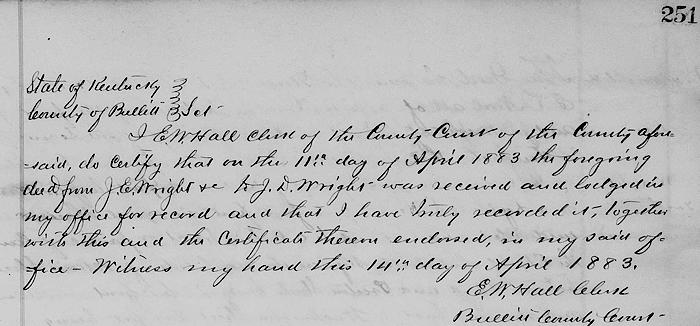 251
State of Kentucky
County of Bullitt } Sct
I E. W. Hall Clerk of the County Court of the County afore-
-said, do certify that on the 11th day of April 1883 the foregoing
deed from J. E. Wright &c to J. D. Wright was received and lodged in
my office for record and that I have truly recorded it, together
with this and the certificate thereon endorsed, in my said of-
-fice – Witness my hand this 14th day of April 1883.
E. W. Hall Clerk
Bullitt County Court -